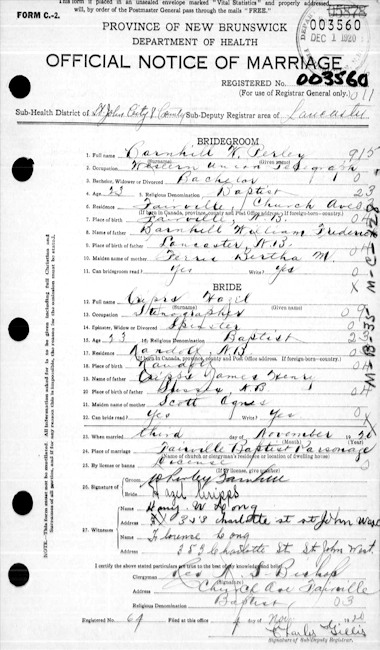 FORM C.-2.
If this form is placed in an unsealed envelope marked "Vital Statistics" and properly addressed
will, by order of the Postmaster General pass through the mails "FREE."
003560
DEC 1 1920
PROVINCE OF NEW BRUNSWICK
DEPARTMENT OF HEALTH
OFFICIAL NOTICE OF MARRIAGE
REGISTERED NO. 003560
(For use of Registrar General only)
Sub-Health District of St John City & County Sub-Deputy Registrar area of Lancaster
BRIDEGROOM
1. Full name Barnhill W. Perley 915
(Surname) (Given names)
2. Occupation Western Union Telegraph
3. Bachelor, Widower or Divorced Bachelor
4. Age 23 5. Religious Denomination Baptist 23
6. Residence Fairville Church Ave
(If born in Canada, province, county and Post Office address. If foreign-born—country.)
7. Place of birth Fairville N.B.
8. Name of father Barnhill William Frederick
9. Place of birth of father Lancaster N.B.
10. Maiden name of mother Ferris Bertha M.
11. Can bridegroom read? Yes Write? Yes
BRIDE
12. Full name Cripps Hazel
(Surname) (Given names)
13. Occupation Stenographer
14. Spinster, Widow or Divorced Spinster
15. Age 23 16. Religious Denomination Baptist
17. Residence Randolph, N.B.
(If born in Canada, province, county and Post Office address. If foreign-born—country.)
18. Place of birth Randolph
19. Name of father Cripps James Henry
20. Place of birth of father Sussex, N.B.
21. Maiden name of mother Scott Agnes
22. Can bride read? Yes Write? Yes
23. When married third day of November 1920
(Month)
24. Place of marriage Fairville Baptist Parsonage
(Name of church or clergyman's residence or location of dwelling house)
25. By license or banns License
(If license, give number)
26. Signature of Groom W Perley Barnhill
Bride Hazel Cripps
27. Witnesses Harry W Long
Address 353 Charlotte st st John West
Florence Long
Address 353 Charlotte St. St John West
I certify the above stated particulars are true to the best of my knowledge and belief.
Clergyman Rev. A. S. Bishop
(Signature)
Address Church Ave Fairville
Religious Denomination Baptist 03
Registered No. 69 Filed at this office Nov 1920
Charles Gillis
(Signature of Sub-Deputy Registrar.)